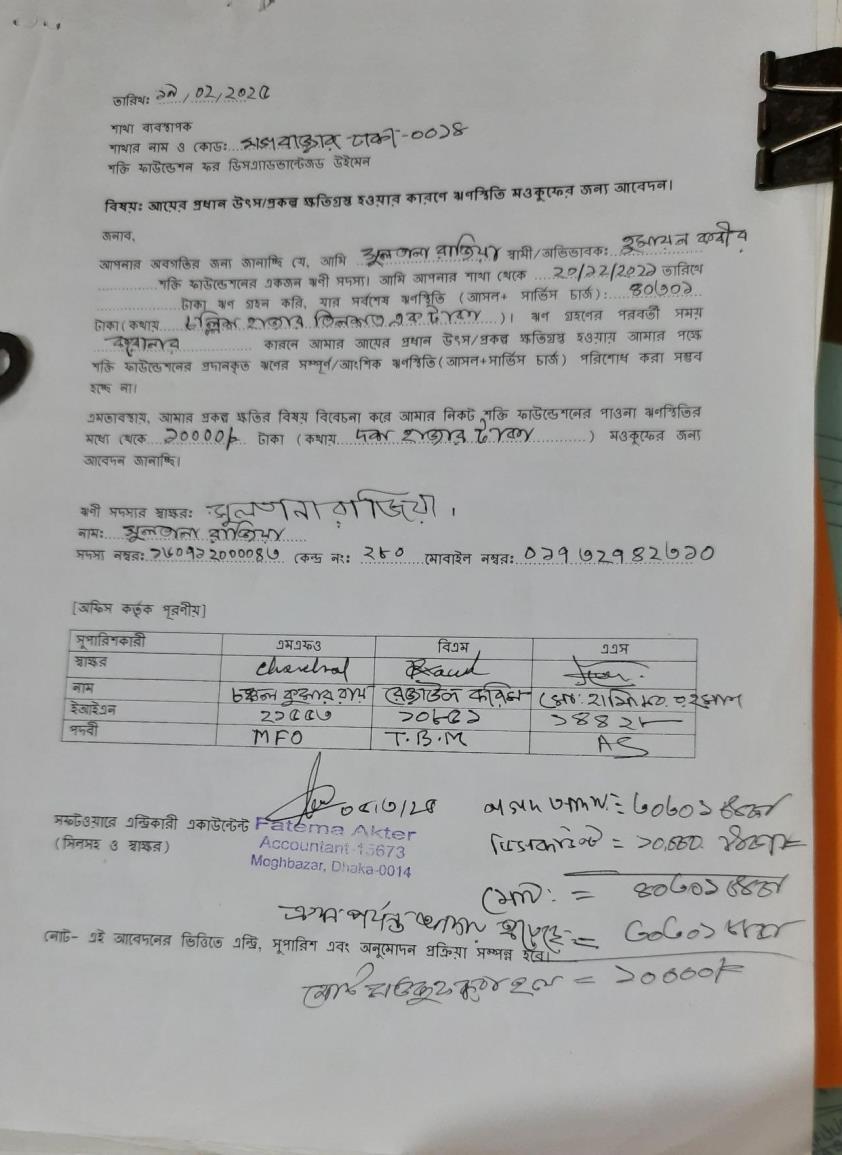 তারিখ: ১৯/০২/২০২৫
শাখা ব্যবস্থাপক
শাখার নাম ও কোড: মগবাজার ঢাকা-০০১৪
শক্তি ফাউন্ডেশন ফর ডিসএ্যাডভান্টেজড উইমেন
বিষয়: আয়ের প্রধান উৎস/প্রকল্প ক্ষতিগ্রস্থ হওয়ার কারণে ঋণস্থিতি মওকুফের জন্য আবেদন।
জনাব,
আপনার অবগতির জন্য জানাচ্ছি যে, আমি সুলতানা রাজিয়া স্বামী/অভিভাবক: হুমায়ন কবীর
শক্তি ফাউন্ডেশনের একজন ঋণী সদস্য। আমি আপনার শাখা থেকে ২০/১২/২০২১ তারিখে
টাকা ঋণ গ্রহন করি, যার সর্বশেষ ঋণস্থিতি (আসল+ সার্ভিস চার্জ): ৪০৩০১
টাকা(কথায় চল্লিশ হাজার তিনশত এক টাকা )। ঋণ গ্রহণের পরবর্তী সময়
কারনে আমার আয়ের প্রধান উৎস/প্রকল্প ক্ষতিগ্রস্থ হওয়ায় আমার পক্ষে
শক্তি ফাউন্ডেশনের প্রদানকৃত ঋণের সম্পূর্ণ/আংশিক ঋণস্থিতি(আসল+সার্ভিস চার্জ) পরিশোধ করা সম্ভব
হচ্ছে না।
এমতাবস্থায়, আমার প্রকল্প ক্ষতির বিষয় বিবেচনা করে আমার নিকট শক্তি ফাউন্ডেশনের পাওনা ঋণস্থিতির
মধ্যে থেকে ১০০০০/- টাকা (কথায় দশ হাজার টাকা ) মওকুফের জন্য
আবেদন জানাচ্ছি।
ঋণী সদস্যর স্বাক্ষর: সুলতানা রাজিয়া।
নাম: সুলতানা রাজিয়া
সদস্য নম্বর: কেন্দ্র নং: ২৮০ মোবাইল নম্বর: ০১৭১২১৪২৬১০
[অফিস কর্তৃক পূরনীয়]
সুপারিশকারী এমএফও বিএম এএস
স্বাক্ষর
নাম চঞ্চল কুমার রায় রেজাউল করিম
ইআইএন ২১৫৫৩ ১০৮৫১ ১৪৪২৮
পদবী MFO T.B.M AS
সফটওয়্যারে এন্ট্রিকারী একাউন্টেন্ট Fatema Akter
Accountant-15673
(সিলসহ ও স্বাক্ষর)
Moghbazar, Dhaka-0014
= ৩০৩০১
= ১০,০০০
মোট: = ৪০৩০১
= ৩০৩০১
নোট- এই আবেদনের ভিত্তিতে এন্ট্রি, সুপারিশ এবং অনুমোদন প্রক্রিয়া সম্পন্ন হবে।
= ১০০০০/-